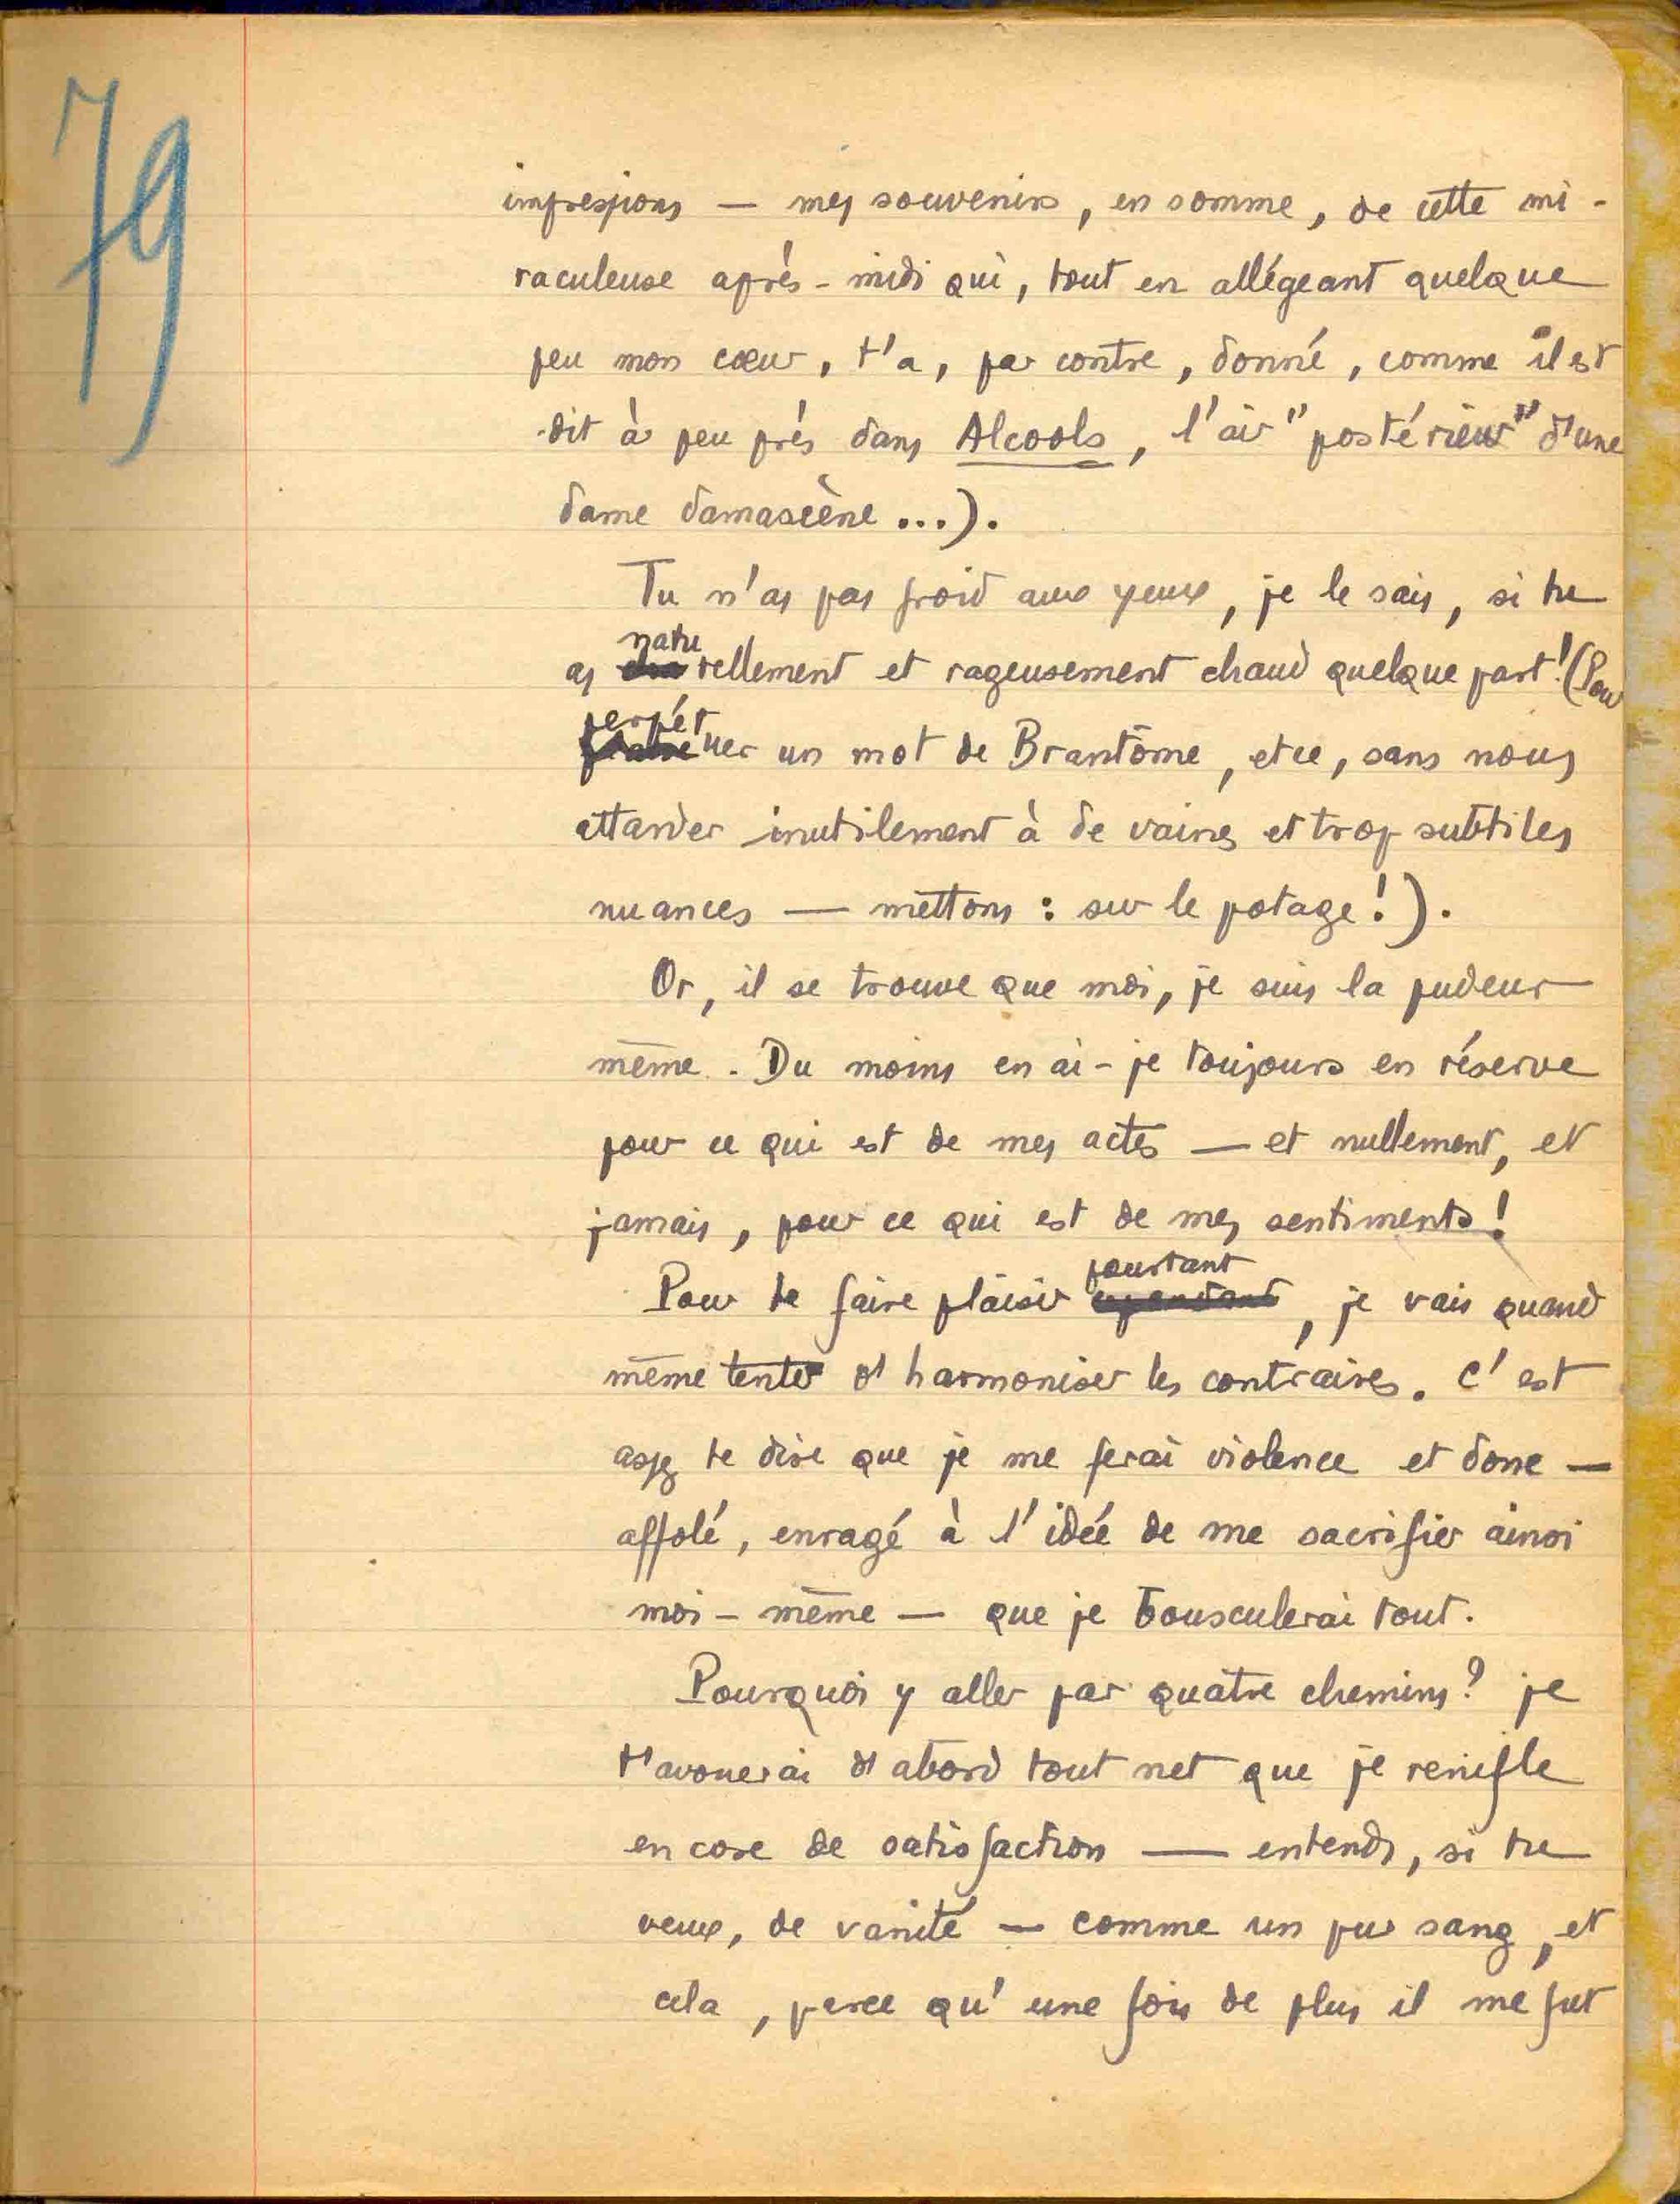 79
impressions — mes souvenirs, en somme, de cette mi-
raculeuse après-midi qui, tout en allégeant quelque
peu mon cœur, t'a, par contre, donné, comme il est
dit à peu près dans Alcools, l'air "postérieur" d'une
dame damascène...).
Tu n'as pas froid aux yeux, je le sais, si tu
as naturellement et rageusement chaud quelque part! (Pour
perpétuer un mot de Brantôme, et ce, sans nous
attarder inutilement à de vaines et trop subtiles
nuances — mettons : sur le potage!).
Or, il se trouve que moi, je suis la pudeur
même. Du moins en ai-je toujours en réserve
pour ce qui est de mes actes — et nullement, et
jamais, pour ce qui est de mes sentiments!
Pour te faire plaisir cependant pourtant, je vais quand
même tenter d'harmoniser les contraires. C'est
assez te dire que je me ferai violence et donc —
affolé, enragé à l'idée de me sacrifier ainsi
moi-même — que je bousculerai tout.
Pourquoi y aller par quatre chemins? je
t'avouerai d'abord tout net que je renifle
encore de satisfaction — entends, si tu
veux, de vanité — comme un pur sang, et
cela, parce qu'une fois de plus il me fut